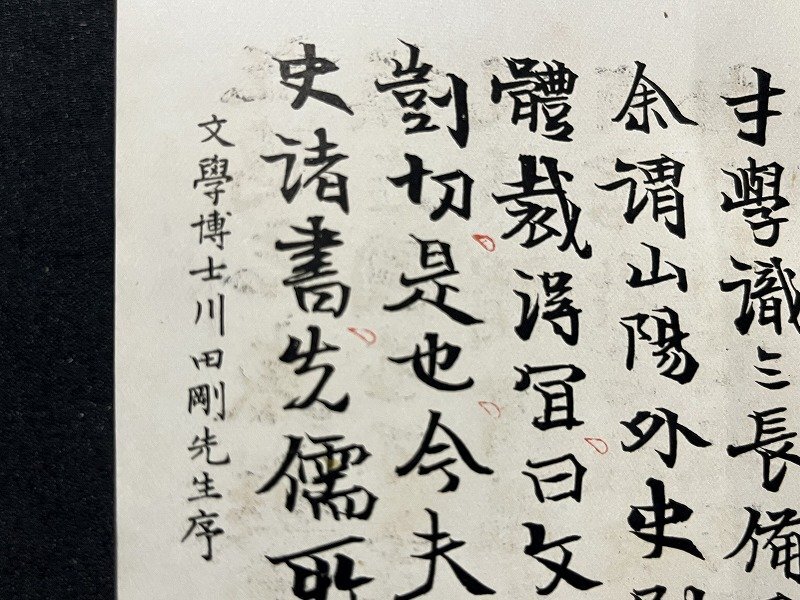 才學識三長備
余謂山陽外史
體裁得宜曰文
剴切是也今夫
史諸書先儒所
文學博士川田剛先生序